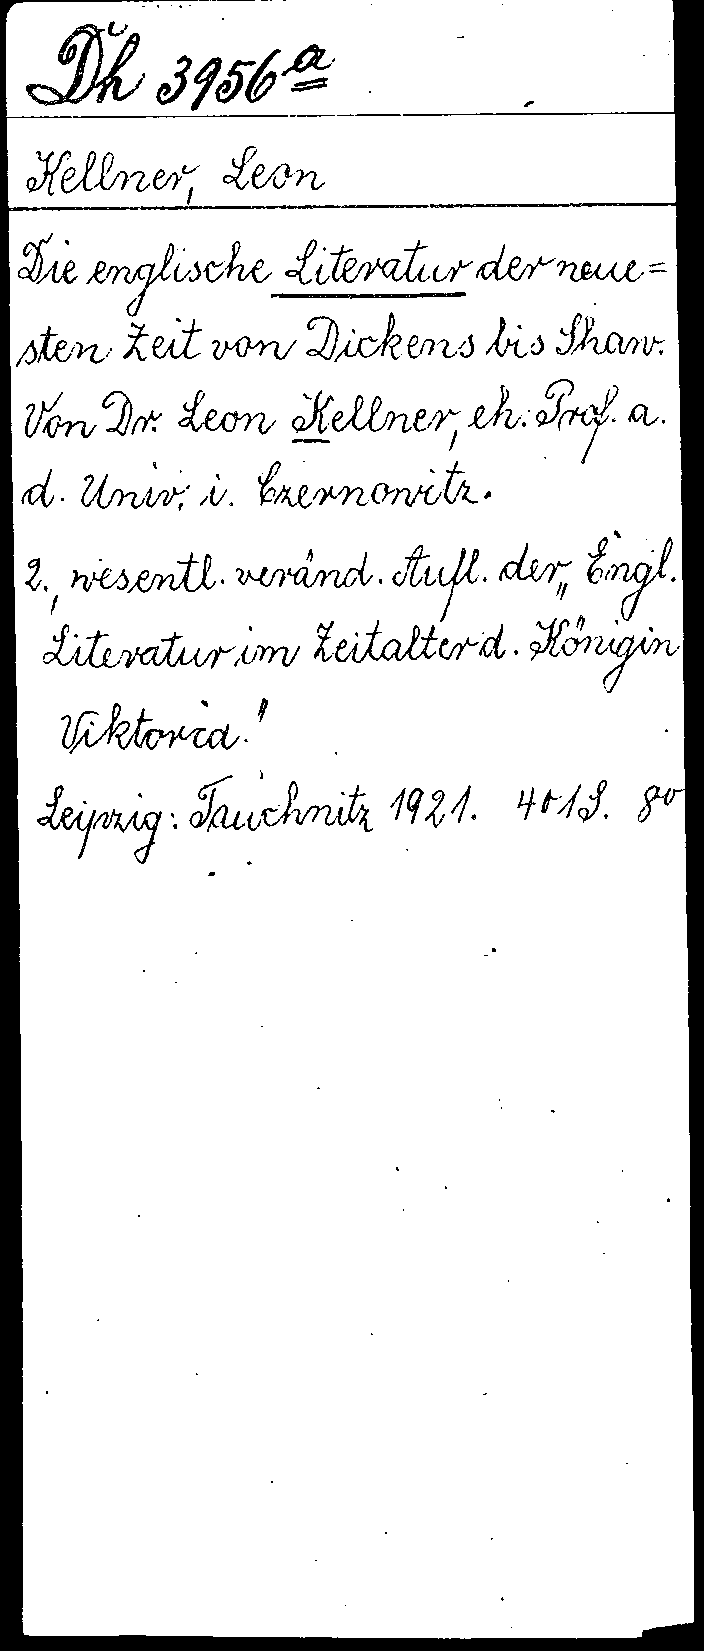 Dh 3956 a
Kellner, Leon
Die englische Literatur der neue=
sten Zeit von Dickens bis Shaw.
Von Dr. Leon Kellner, eh. Prof. a.
d. Univ. i. Czernowitz.
2., wesentl. veränd. Aufl. der „Engl.
Literatur im Zeitalter d. Königin
Viktoria."
Leipzig: Tauchnitz 1921. 401 S. 8o